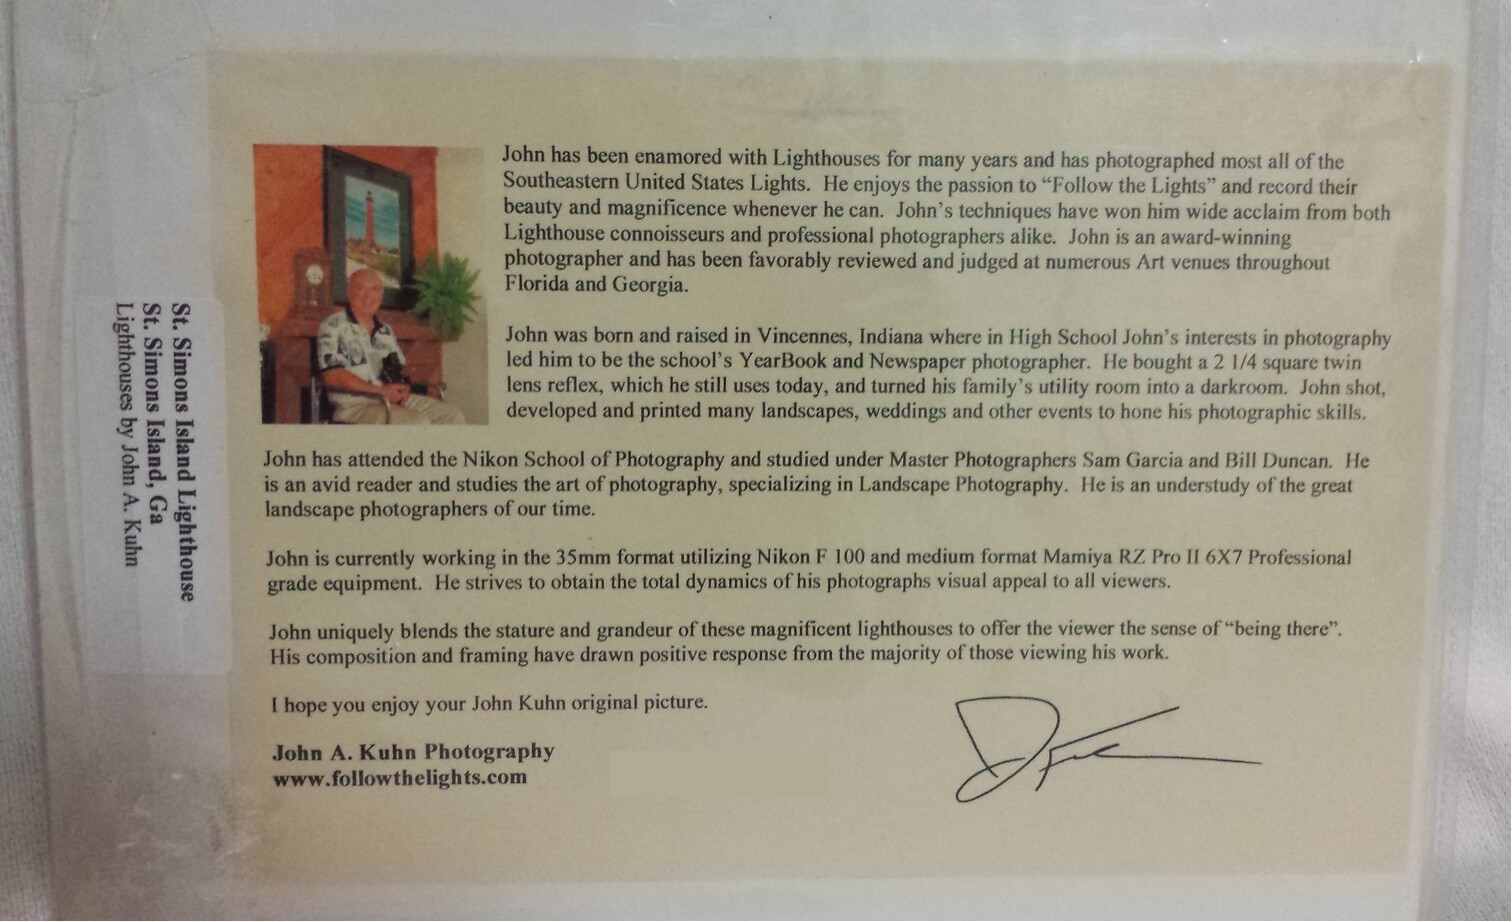 John has been enamored with Lighthouses for many years and has photographed most all of the
Southeastern United States Lights. He enjoys the passion to “Follow the Lights” and record their
beauty and magnificence whenever he can. John’s techniques have won him wide acclaim from both
Lighthouse connoisseurs and professional photographers alike. John is an award-winning
photographer and has been favorably reviewed and judged at numerous Art venues throughout
Florida and Georgia.
John was born and raised in Vincennes, Indiana where in High School John’s interests in photography
led him to be the school’s YearBook and Newspaper photographer. He bought a 2 1/4 square twin
lens reflex, which he still uses today, and turned his family’s utility room into a darkroom. John shot,
developed and printed many landscapes, weddings and other events to hone his photographic skills.
John has attended the Nikon School of Photography and studied under Master Photographers Sam Garcia and Bill Duncan. He
is an avid reader and studies the art of photography, specializing in Landscape Photography. He is an understudy of the great
landscape photographers of our time.
John is currently working in the 35mm format utilizing Nikon F 100 and medium format Mamiya RZ Pro II 6X7 Professional
grade equipment. He strives to obtain the total dynamics of his photographs visual appeal to all viewers.
John uniquely blends the stature and grandeur of these magnificent lighthouses to offer the viewer the sense of “being there”.
His composition and framing have drawn positive response from the majority of those viewing his work.
I hope you enjoy your John Kuhn original picture.
John A. Kuhn Photography
www.followthelights.com
St. Simons Island Lighthouse
St. Simons Island, Ga
Lighthouses by John A. Kuhn